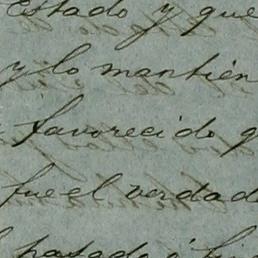 estado y que
y lo mantien
favorecido q
fue el verdad
pasado